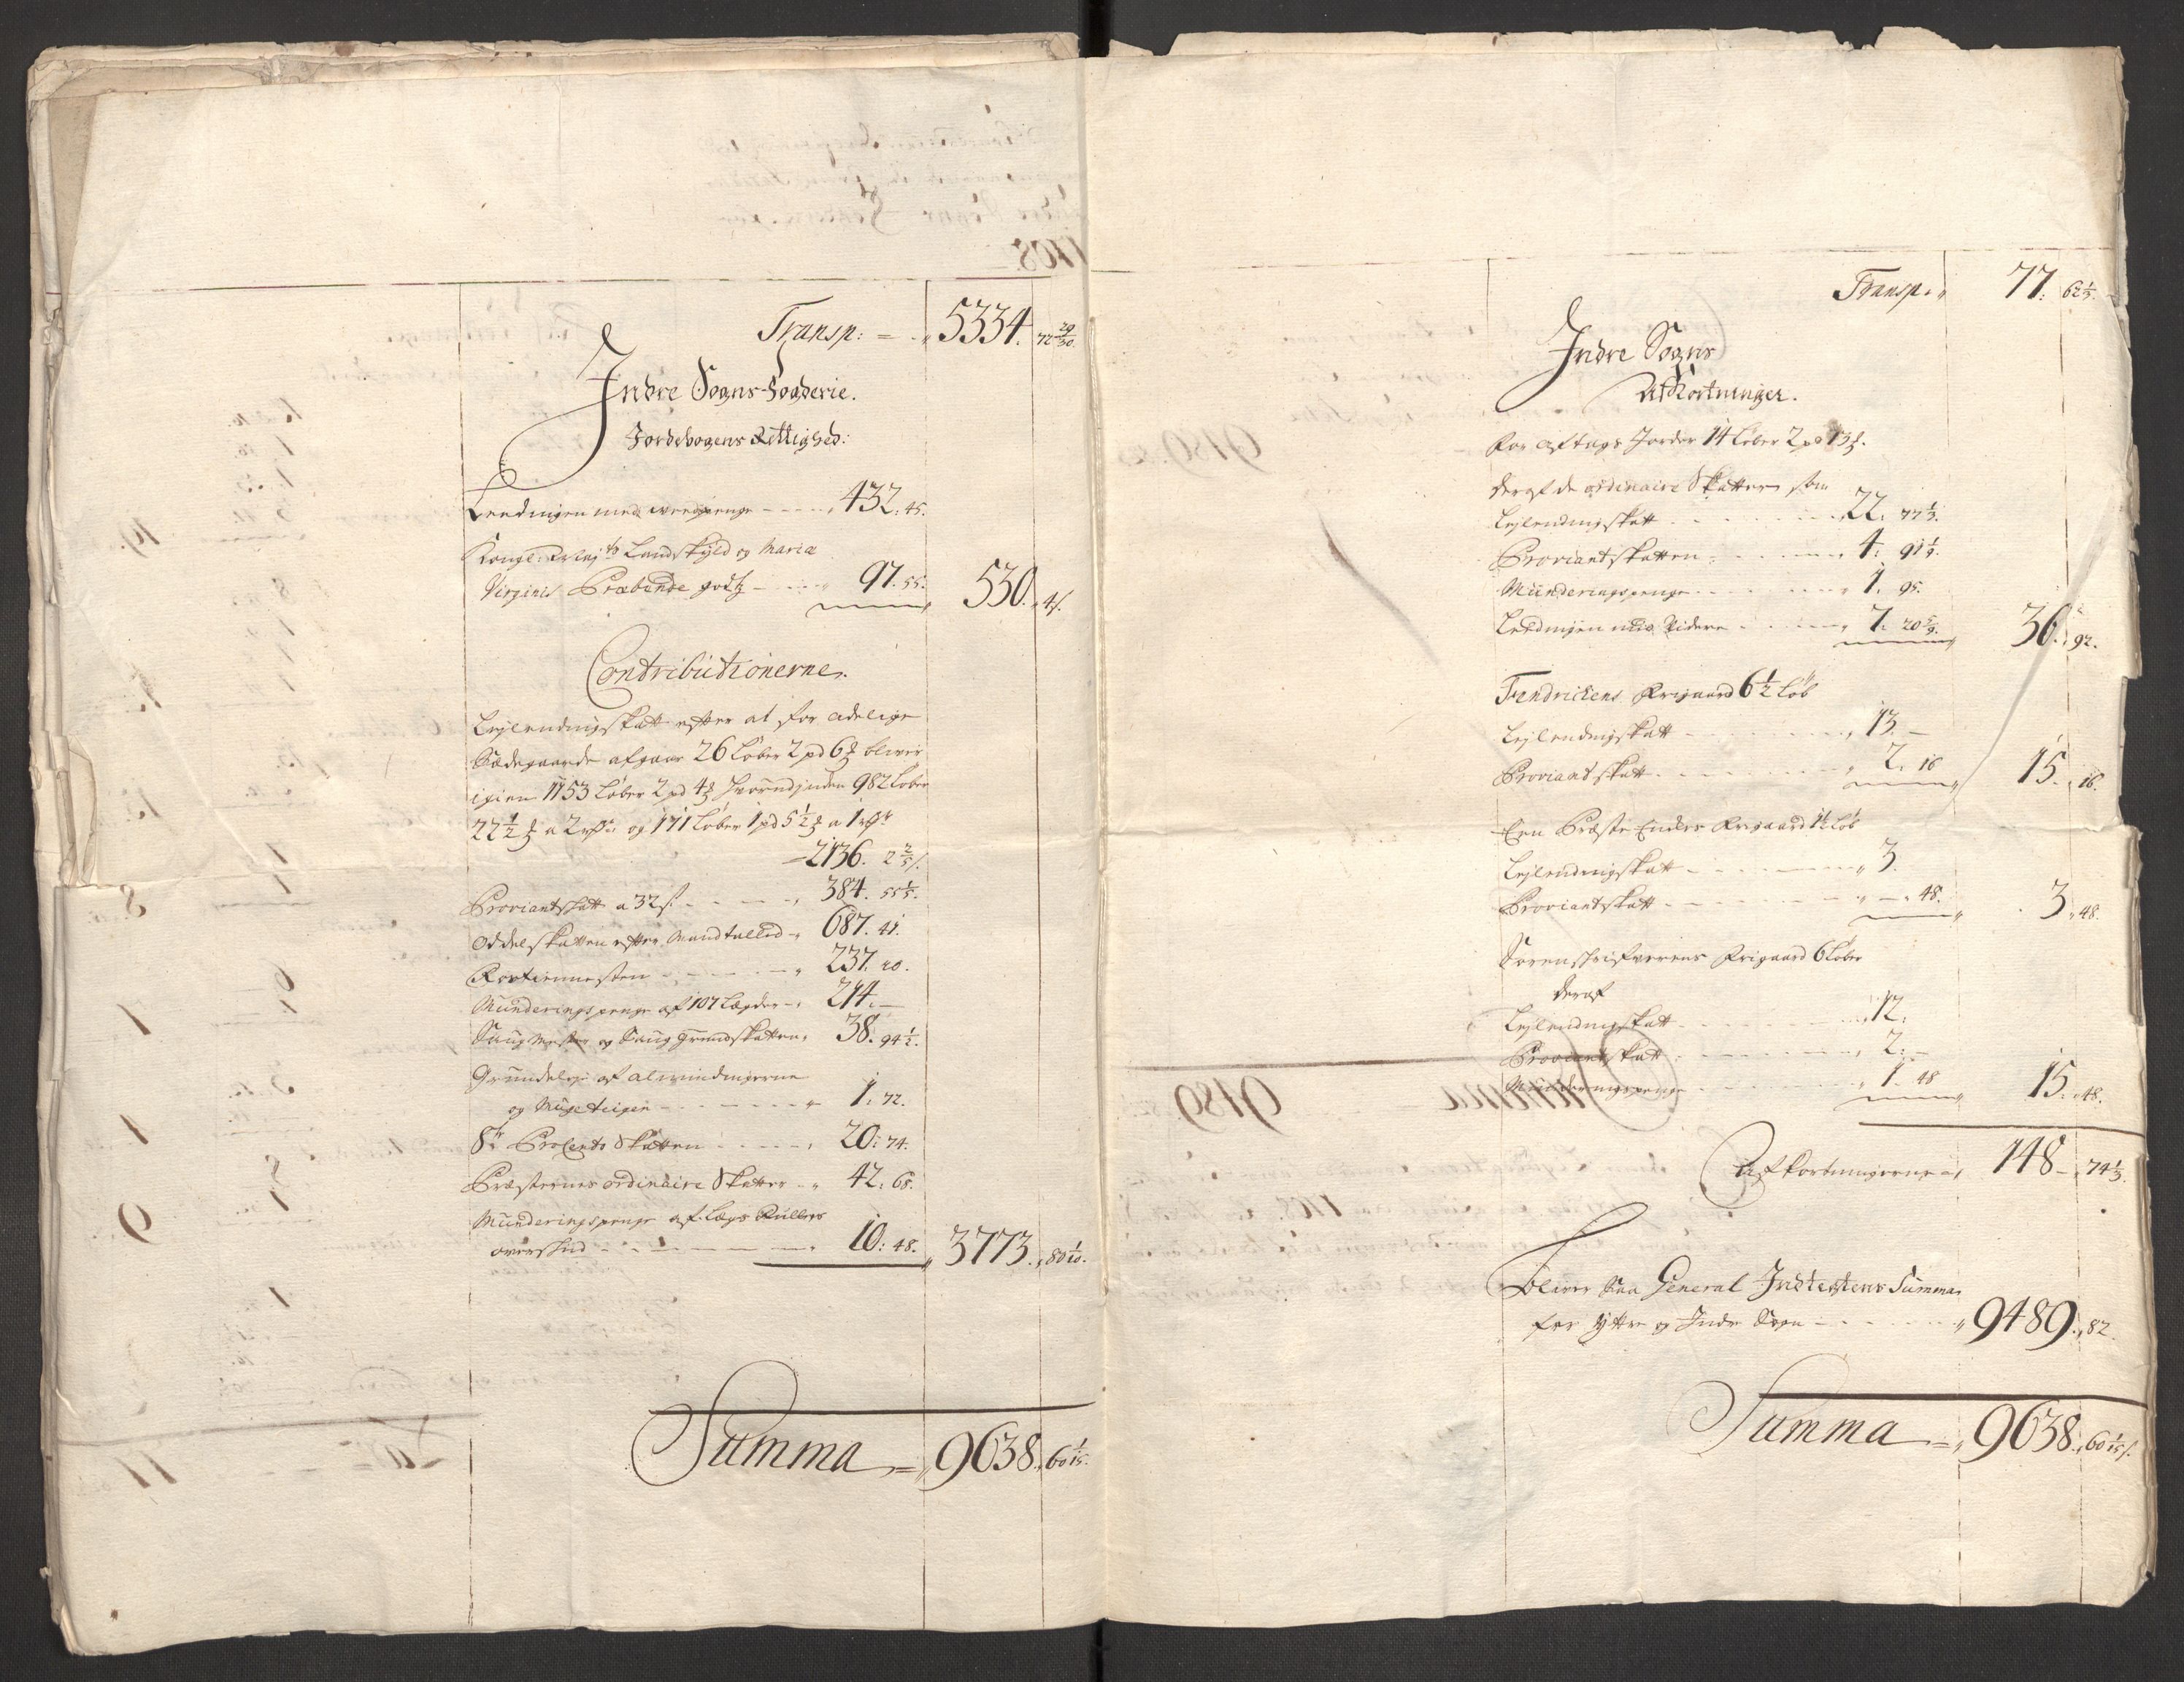 Transp: = „ 5334. 72 29/30.
Indre Sogns-Fogderie.
Jordebogens Rettighed:
Leedingen med wendpenge – – – „ 432. 45.
Kongl: May.ts Landskyld og Maria
Virginis Præbende godtz – – – „ 97. 55. „ 530. „ 4 s.
Contributionerne.
Lejlendingskatt efter at for adelige
Sædegaarde afgaar 26 Løber 2 pd 6 ℔ bliver
igien 1153 Løber 2 pd 4 ℔ hvorudjnden 982 Løber
22 1/2 ℔ a 2 rdr. og 171 Løber 1 pd 5 1/2 ℔ a 1 rdr
– 2136. 2 2/5 s.
Proviantskatt a 32 s – – – – „ 384. 55 1/5.
Oddelskatten efter Mandtalled – „ 687. 41.
Rostienneste – – – – „ 237. 20.
Munderingspenge af 107 Lægder – „ 214. –
Saugmester og Sauggrundskatten „ 38. 94 1/2.
Grundeleje af almindingerne
og – – – – – – „ 1. 72.
8de Procento Skatten – – – – „ 20: 74.
Præsternes ordinaire Skatter – „ 42: 68.
Munderingspenge af Lægs Rullers
overskud – – – – – – „ 10: 48. „ 3773. „ 80 1/10.
Summa = „ 9638. „ 60 1/15.
Transp. „ 77. 62 1/3.
Indre Sogns
Afkortninger.
For aftags Jorder 14 Løber 2 pd 13 ℔.
Deraf de ordinaire Skatter som
Lejlendingskatt – – – – „ 22. 77 1/3.
Proviantskatten – – – – „ 4. 91 1/9.
Munderingspenge – – – – „ 1. 95.
Leedingen med Videre – – – „ 7. 20 5/9. „ 36. „ 92.
Fendrichens Frigaard 6 1/2 Løb
Lejlendingskatt – – – – „ 13. –
Proviant skatt – – – – „ 2. 16 „ 15. „ 16.
Een Præste Enckes Frigaard 1 1/2 Løb
Lejlendingskatt – – – – „ 3.
Proviantskatt – – – – „ – „ 48. „ 3. „ 48.
Sorenskrifverens Frigaard 6 Løber
Deraf
Lejlendingskatt – – – – „ 12.
Proviantskatt – – – – „ 2. –
Munderingspenge – – – – „ 1. 48 „ 15. „ 48.
Afkortningerne = „ 148 – „ 74 1/3.
Bliver Saa General Indtegtens Summa
for Yttre og Indre Sogn – – – – „ 9489. „ 82.
Summa = „ 9638. „ 60 1/15 s.